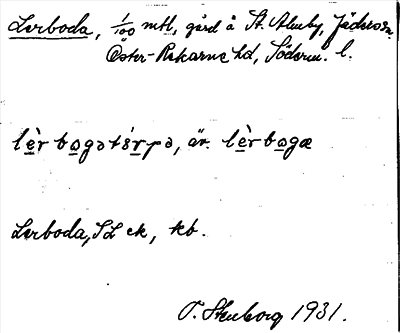 Lerboda, 1/100 mtl, gård å St. Almby, Jäders sn
Öster-Rekarne hd, Söderm. l.
lèr bogətórpə, äv. lèrbogæ
Lerboda, SL ek, kb.
O. Stenborg 1931.